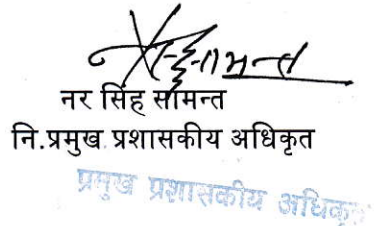 नर सिंह सामन्त
नि.प्रमुख प्रशासकीय अधिकृत
प्रमुख प्रशासकीय अधिकृत